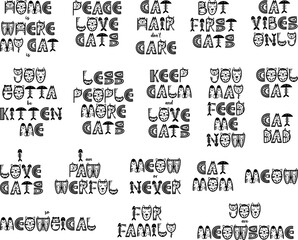 HOME
is
WHERE
MY CAT
is
PEACE
LOVE
CATS
CAT
HAIR
don't
CARE
BUT
FIRST
CATS
CAT
VIBES
ONLY
YOU
GOTTA
be
KITTEN
ME
LESS
PEOPLE
MORE
CATS
KEEP
CALM
and
LOVE
CATS
YOU
MAY
FEED
ME
NOW
COOL
CAT
CAT
DAD
I
LOVE
CATS
I am
PAW
ERFUL
MEOW
or
NEVER
CAT
MOM
CAT
MAMA
so
MEOWGICAL
FUR
FAMILY
YOU
are
MEOWSOME